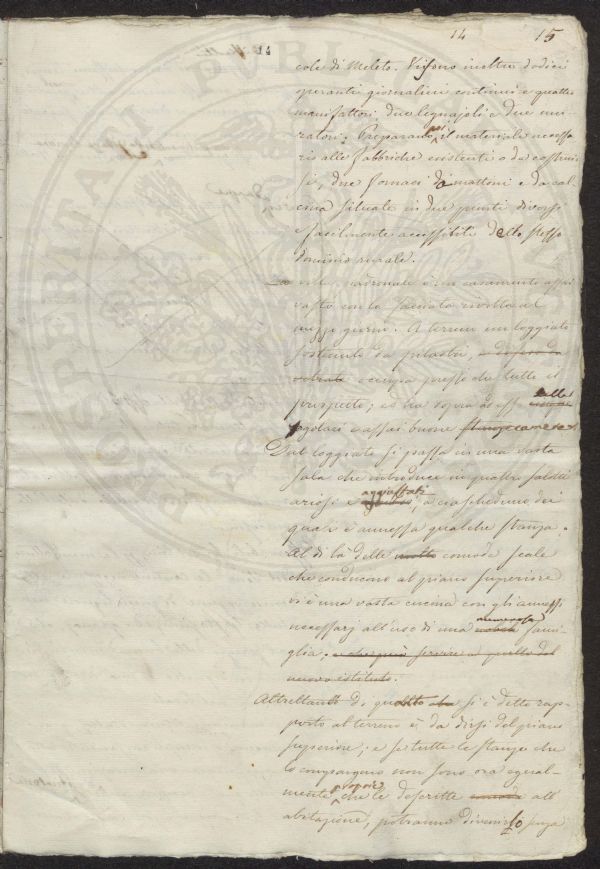 14
14 15
cole di Meleto. Vi sono inoltre dodici
operanti giornalieri continui e quattro
manifattori due legnajoli e due mu-
ratori. Preparano poi il materiale necessa
rio alle fabbriche esistenti o da costruir
si, due fornaci da mattoni e da cal
cina situate in due punti diversi
facilmente accessibili dello stesso
dominio rurale.
La villa padronale è un casamento assai
vasto con la facciata rivolta al
mezzo giorno. A terreno un loggiato
sostenuto da pilastri, e difeso da
vetrate occupa presso che tutto il
prospetto; ed ha sopra ad esso
regolari e assai buone stanze camere
Dal loggiato si passa in una vasta
sala che introduce in quattro salotti
ariosi e aggiustati, a ciascheduno dei
quali è annessa qualche stanza.
Al di là delle molto comode scale
che conducono al piano superiore
vi è una vasta cucina con gli annessi
necessarj all'uso di una numerosa fami-
glia. e che può servire a quello del
nuovo istituto.
Altrettanto di quello che si è detto rap-
porto al terreno è da dirsi del piano
superiore; e se tutte le stanze che
lo compongono non sono ora egual-
mente che le descritte all'
abitazione, potranno divenirlo senza